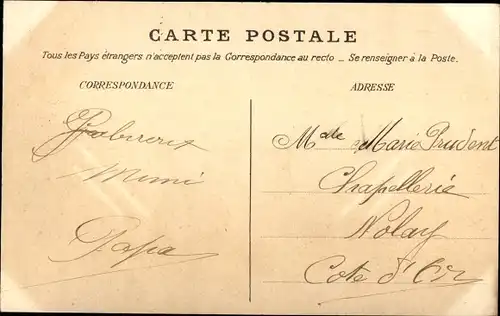 CARTE POSTALE
Tous les Pays étrangers n'acceptent pas la Correspondance au recto _ Se renseigner à la Poste.
CORRESPONDANCE
Mimi
Papa
ADRESSE
Mdle Marie Prudent
Chapellerie
Nolay
Cote d'Or